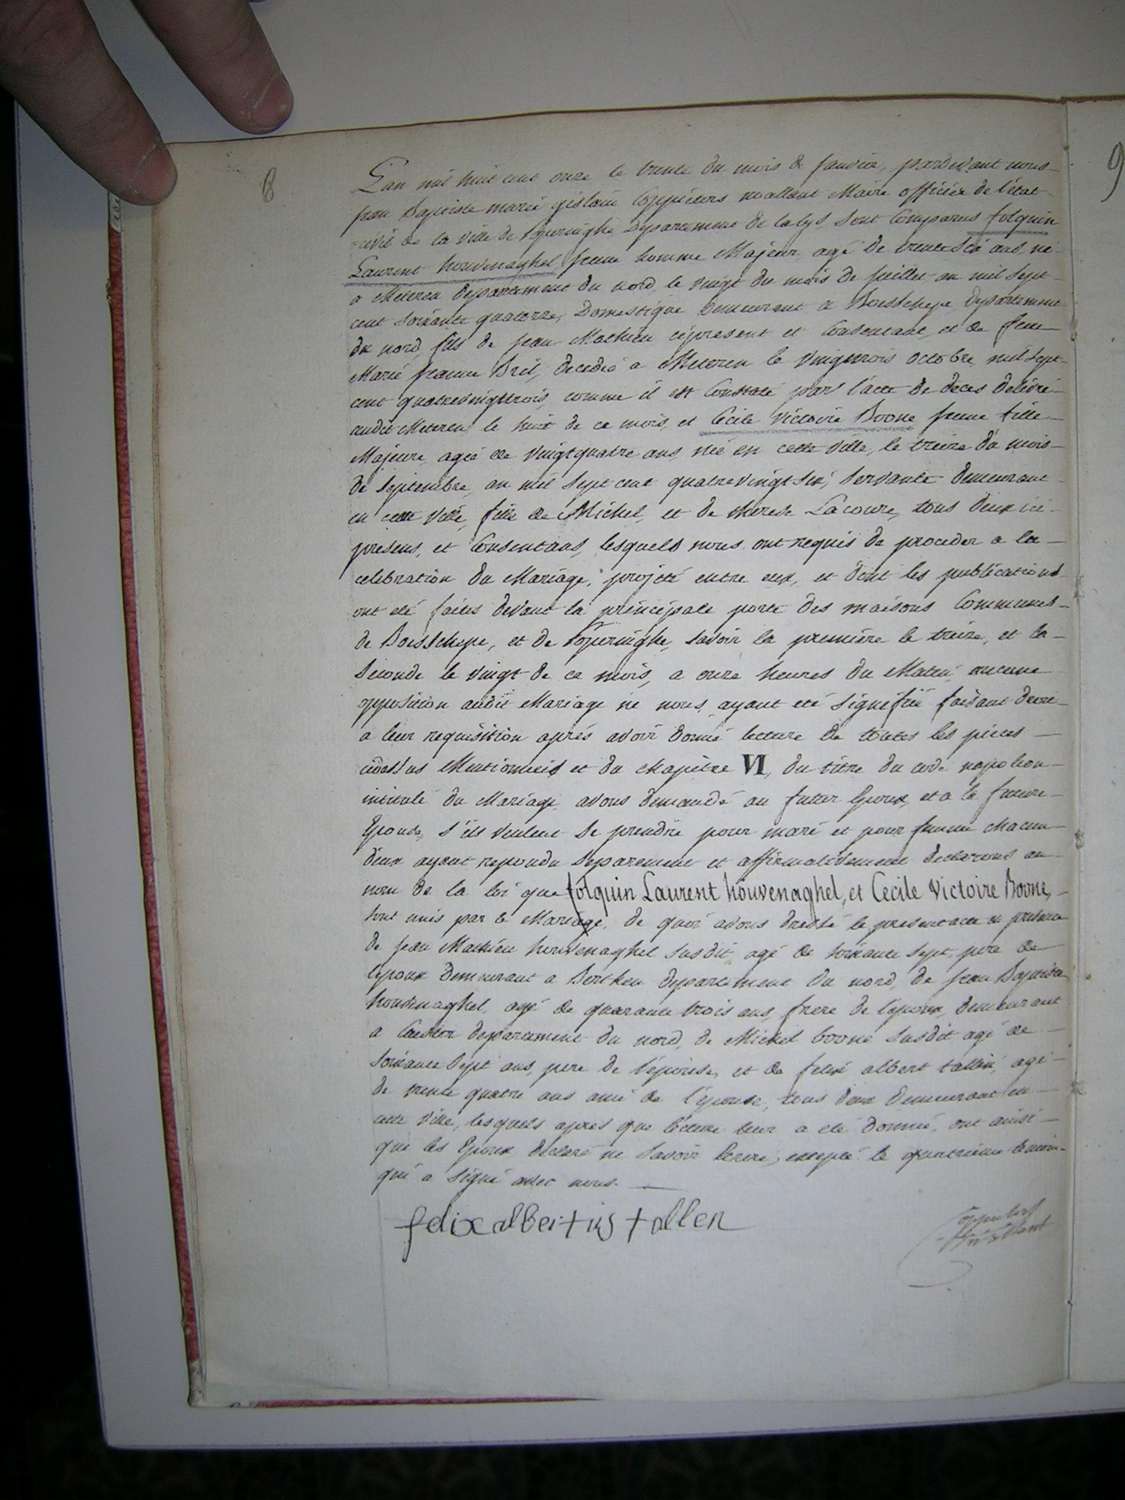 8
9
L'an mil huit cent onze le trente du mois de janvier, pardevant nous
jean Baptiste marie gislain Coppieters wallant Maire officier de l'état
civil de la ville de Poperinghe Departement de la lys, sont Comparus folquin
Laurent houvenaghel jeune homme Majeur agé de trente six ans, né
a Meteren departement du nord le vingt du mois de juillet an mil sept
cent soixante quatorze, Domestique demeurant a Boeschepe departement
du nord, fils de jean Mathieu ci present et Consentant, et de feue
Marie jeanne Bril, decedée a Meteren le vingttrois octobre mil sept
cent quatrevingttrois, comme il est Constaté par l'acte de deces delivré
audit Meteren le huit de ce mois, et Cecile Victoire Boone jeune fille
Majeure agée de vingtquatre ans née en cette ville, le treize du mois
de Septembre an mil sept cent quatrevingt six, Servante demeurant
en cette ville, fille de Michel, et de therese Lacoure, tous deux ici
presens, et Consentans, lesquels nous ont requis de proceder a la
celebration du Mariage, projeté entre eux, et dont les publications
ont été faites devant la principale porte des maisons Communes
de Boeschepe, et de Poperinghe, savoir la première le treize, et la
Seconde le vingt de ce mois, a onze heures du Matin, aucune
opposition audit Mariage ne nous ayant été signifiée faisant droit
a leur requisition après avoir donné lecture de toutes les pièces
cidessus Mentionnées et du chapitre VI, du titre du code napoleon
intitulé du Mariage, avons demandé au futur Epoux, et a la future
Epouse, s'ils veulent se prendre pour mari et pour femme chacun
deux ayant repondu separement et affirmativement declarons au
nom de la loi que folquin Laurent houvenaghel, et Cecile Victoire Boone,
sont unis par le Mariage, de quoi avons dressé le present acte en presence
de jean Mathieu houvenaghel susdit, agé de soixante sept, pere de
lepoux demeurant a Berthen departement du nord, de jean Baptiste
houvenaghel, agé de quarante trois ans, frere de l'epoux, demeurant
a Caester departement du nord, de Michel boone susdit agé de
soixante sept ans, pere de l'épouse, et de felix albert tallen, agé
de trente quatre ans ami de l'epouse, tous deux demeurant en
cette ville, lesquels après que lecture leur a été donnée, ont ainsi
que les Epoux declaré ne savoir ecrire, excepté le quatrieme temoin
qui a signé avec nous.
felix albertus tallen